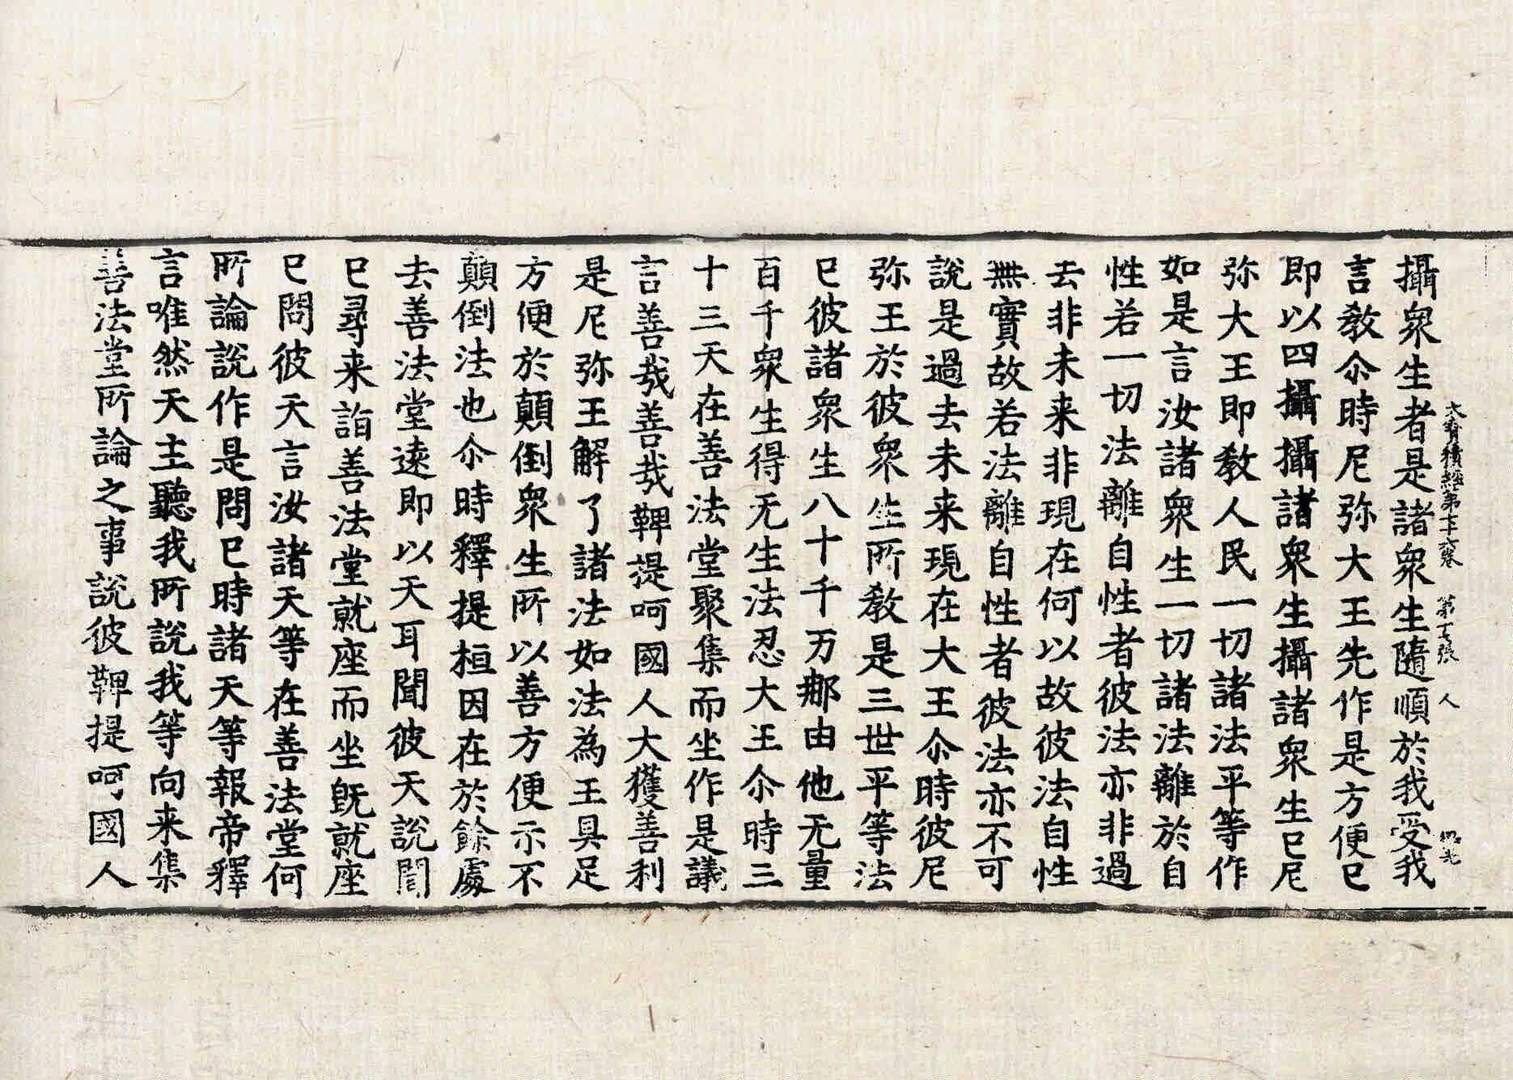 大寶積經第七十六卷　人
攝衆生者是諸衆生隨順於我受我
言教尒時尼弥大王先作是方便已
即以四攝攝諸衆生攝諸衆生已尼
弥大王即教人民一切諸法平等作
如是言汝諸衆生一切諸法離於自
性若一切法離自性者彼法亦非過
去非未来非現在何以故彼法自性
無實故若法離自性者彼法亦不可
說是過去未来現在大王尒時彼尼
弥王於彼衆生所教是三世平等法
已彼諸衆生八十千万那由他无量
百千衆生得无生法忍大王尒時三
十三天在善法堂聚集而坐作是議
言善哉善哉鞞提呵國人大獲善利
是尼弥王解了諸法如法為王具足
方便於顛倒衆生所以善方便示不
顛倒法也尒時釋提桓因在於餘處
去善法堂遠即以天耳聞彼天說聞
已尋来詣善法堂就座而坐既就座
已問彼天言汝諸天等在善法堂何
所論說作是問已時諸天等報帝釋
言唯然天主聽我所說我等向来集
善法堂所論之事說彼鞞提呵國人